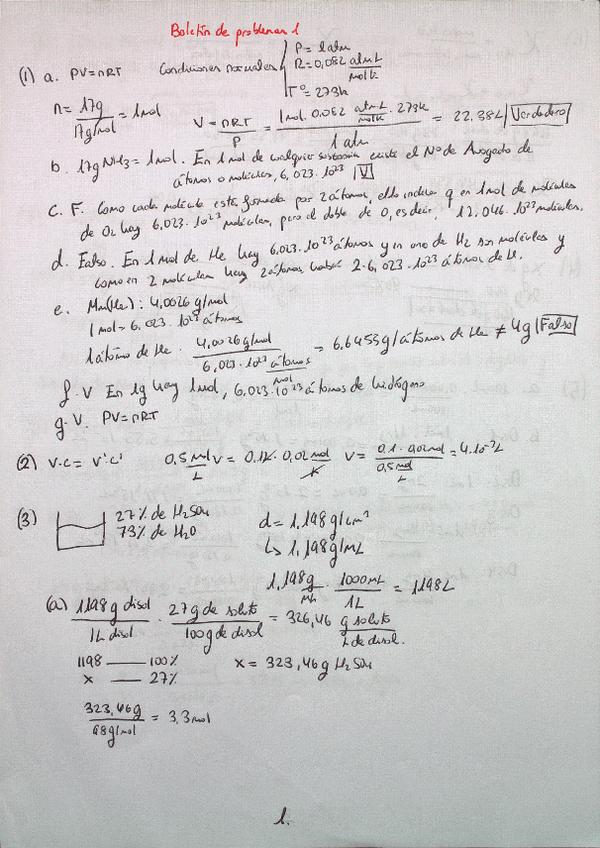 Boletín de problemas 1
(1) a. PV=nRT Condiciones normales P = 1 atm
R = 0,082 atm·L/mol·K
Tº = 273K
n = 17g / 17g/mol = 1mol V = nRT / P = 1mol · 0.082 atm·L/mol·K · 273K / 1 atm = 22.38L | Verdadero
b. 17g NH3 = 1mol. En 1 mol de cualquier sustancia existe el Nº de Avogado de
átomos o moléculas, 6,023·10²³ | V
c. F. Como cada molécula está formada por 2 átomos, ello indica q en 1mol de moléculas
de O2 hay 6,023·10²³ moléculas, pero el doble de O, es decir, 12,046·10²³ moléculas.
d. Falso. En 1 mol de He hay 6.023·10²³ átomos y en uno de H2 son moléculas y
como en 2 moléculas hay 2 átomos habrá 2·6,023·10²³ átomos de H.
e. Mm(He): 4,0026 g/mol
1 mol → 6,023·10²³ átomos
1 átomo de He · 4,0026 g/mol / 6,023·10²³ átomos/mol = 6,6455 g/átomos de He ≠ 4g | Falso
f. V En 1g hay 1mol, 6,023·10²³ átomos de hidrógeno
g. V. PV=nRT
(2) V·C = V'·C' 0,5 mol/L V = 0,1L · 0,02 mol/L V = 0,1 · 0,02 mol / 0,5 mol/L = 4·10⁻³ L
(3) 27% de H2SO4
73% de H2O
d = 1,198 g/cm³
↳ 1,198 g/mL
1,198 g/mL · 1000mL/1L = 1198L
(a) 1198 g disol / 1L disol · 27g de soluto / 100g de disol = 326,46 g soluto / L de disol.
1198 —— 100% x = 323,46 g H2SO4
x —— 27%
323,46g / 98g/mol = 3,3 mol
1.